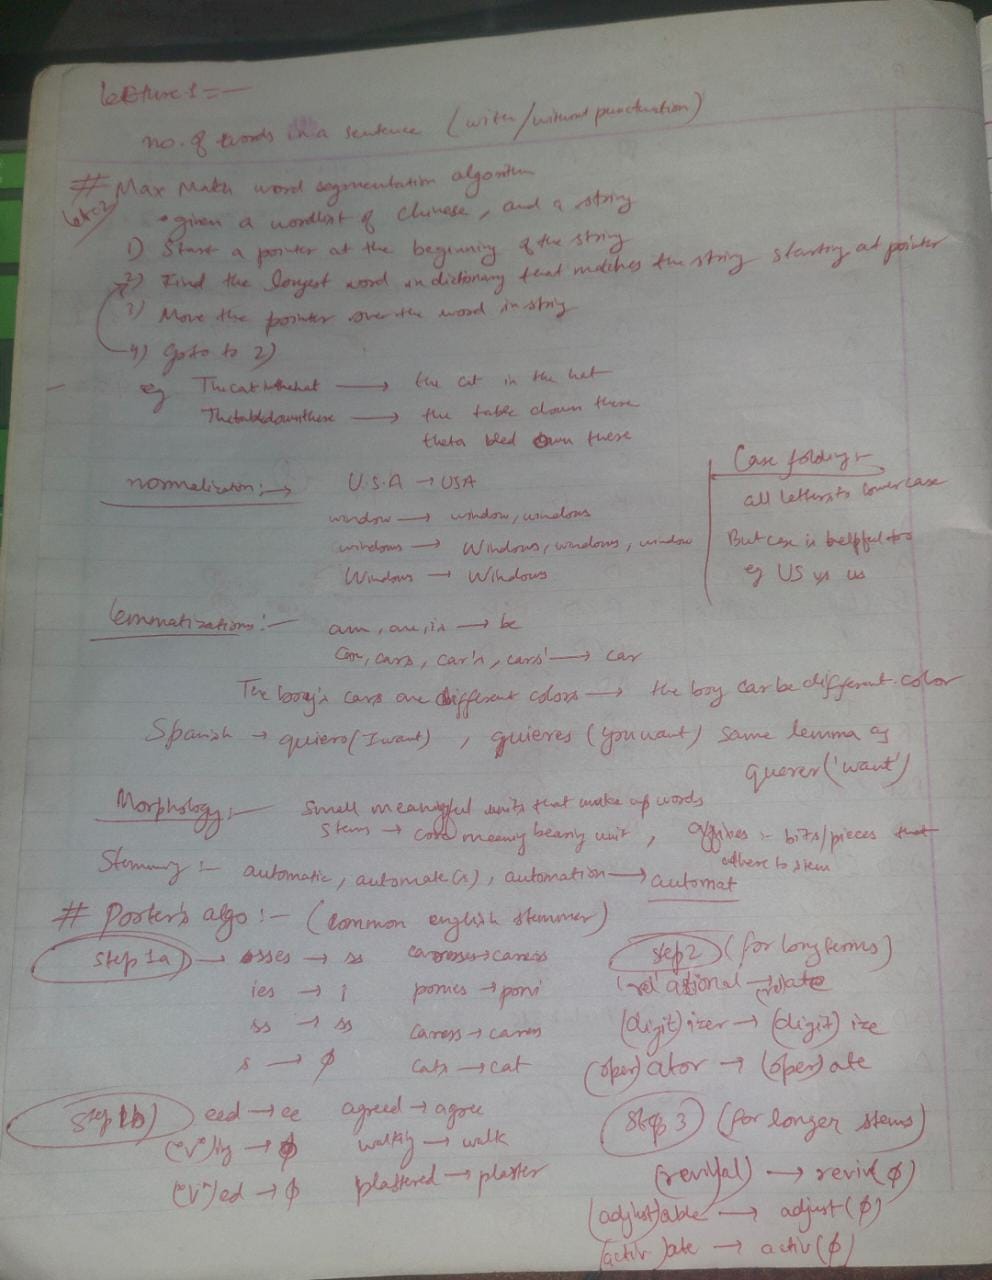 Lecture 1 :-
no. of words in a sentence (with/without punctuation)
# Max Match word segmentation algorithm
Lec 2
• given a wordlist of Chinese, and a string
1) Start a pointer at the beginning of the string
2) Find the longest word in dictionary that matches the string starting at pointer
3) Move the pointer over the word in string
4) Go to to 2)
eg Thecatinthehat → the cat in the hat
Thetabledownthere → the table down there
theta bled own there
normalization :→ U.S.A → USA
window → window, windows
windows → Windows, windows, window
Windows → Windows
Case folding :-
all letters to lower case
But case is helpful too
eg US vs us
Lemmatizations :- am, are, is → be
Car, cars, car's, cars' → car
The boy's cars are different colors → the boy car be different color
Spanish → quiero (I want) , quieres (you want) same lemma as
querer ('want')
Morphology :- Small meaningful units that make up words
Stems → core meaning bearing unit , affixes :- bits/pieces that
adhere to stem
Stemming :- automatic, automate(s), automation → automat
# Porter's algo :- (common english stemmer)
Step 1a → sses → ss caresses → caress
ies → i ponies → poni
ss → ss caress → caress
s → ϕ cats → cat
Step 1b) eed → ee agreed → agree
(*v*)ing → ϕ walking → walk
(*v*)ed → ϕ plastered → plaster
Step 2 (for long terms)
(rel)ational → (rel)ate
(digit)izer → (digit)ize
(oper)ator → (oper)ate
Step 3 (for longer stems)
(reviv)al → reviv(ϕ)
(adjust)able → adjust(ϕ)
(activ)ate → activ(ϕ)